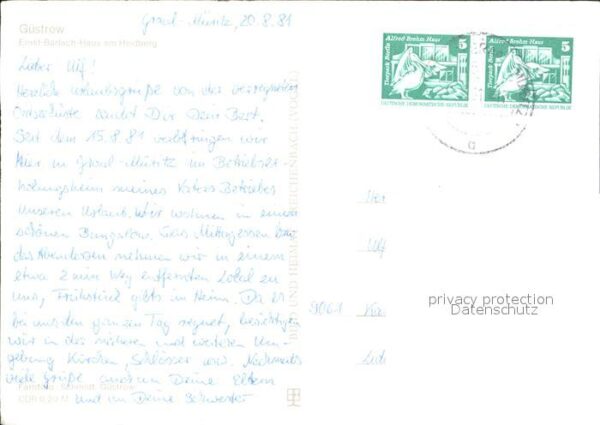 Graal-Müritz, 20.8.81
Güstrow
Ernst-Barlach-Haus am Heidberg
Lieber Ulf!
Herzliche Urlaubsgrüße von der verregneten
Ostseeküste sendet Dir Dein Bert.
Seit dem 15.8.81 verbringen wir
hier in Graal-Müritz im Betriebser-
holungsheim meines Vaters Betriebes
unseren Urlaub. Wir wohnen in einem
schönen Bungalow. Das Mittagessen bzw.
das Abendessen nehmen wir in einem
etwa 2 min Weg entfernten Lokal zu
uns, Frühstück gibts im Heim. Da es
bei uns den ganzen Tag regnet, besichtigen
wir in der näheren und weiteren Um-
gebung Kirchen, Schlösser usw. Nochmals
viele Grüße auch an Deine Eltern
und an Deine Schwester
Farbfoto: Schmidt, Güstrow
DDR 0,20 M
BILD UND HEIMAT REICHENBACH
Alfred Brehm Haus
Tierpark Berlin
5
DEUTSCHE DEMOKRATISCHE REPUBLIK
Alfred Brehm Haus
Tierpark Berlin
5
DEUTSCHE DEMOKRATISCHE REPUBLIK
Ulf
9061
privacy protection
Datenschutz